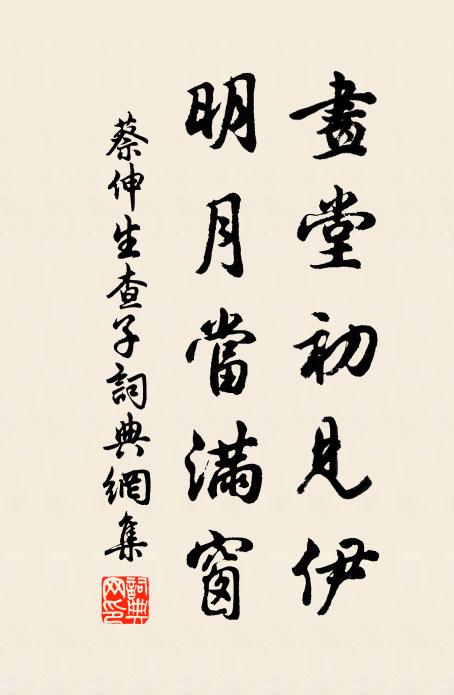 畫堂初見伊
明月當滿窗
蔡伸生查子詞典網集
詞典網印